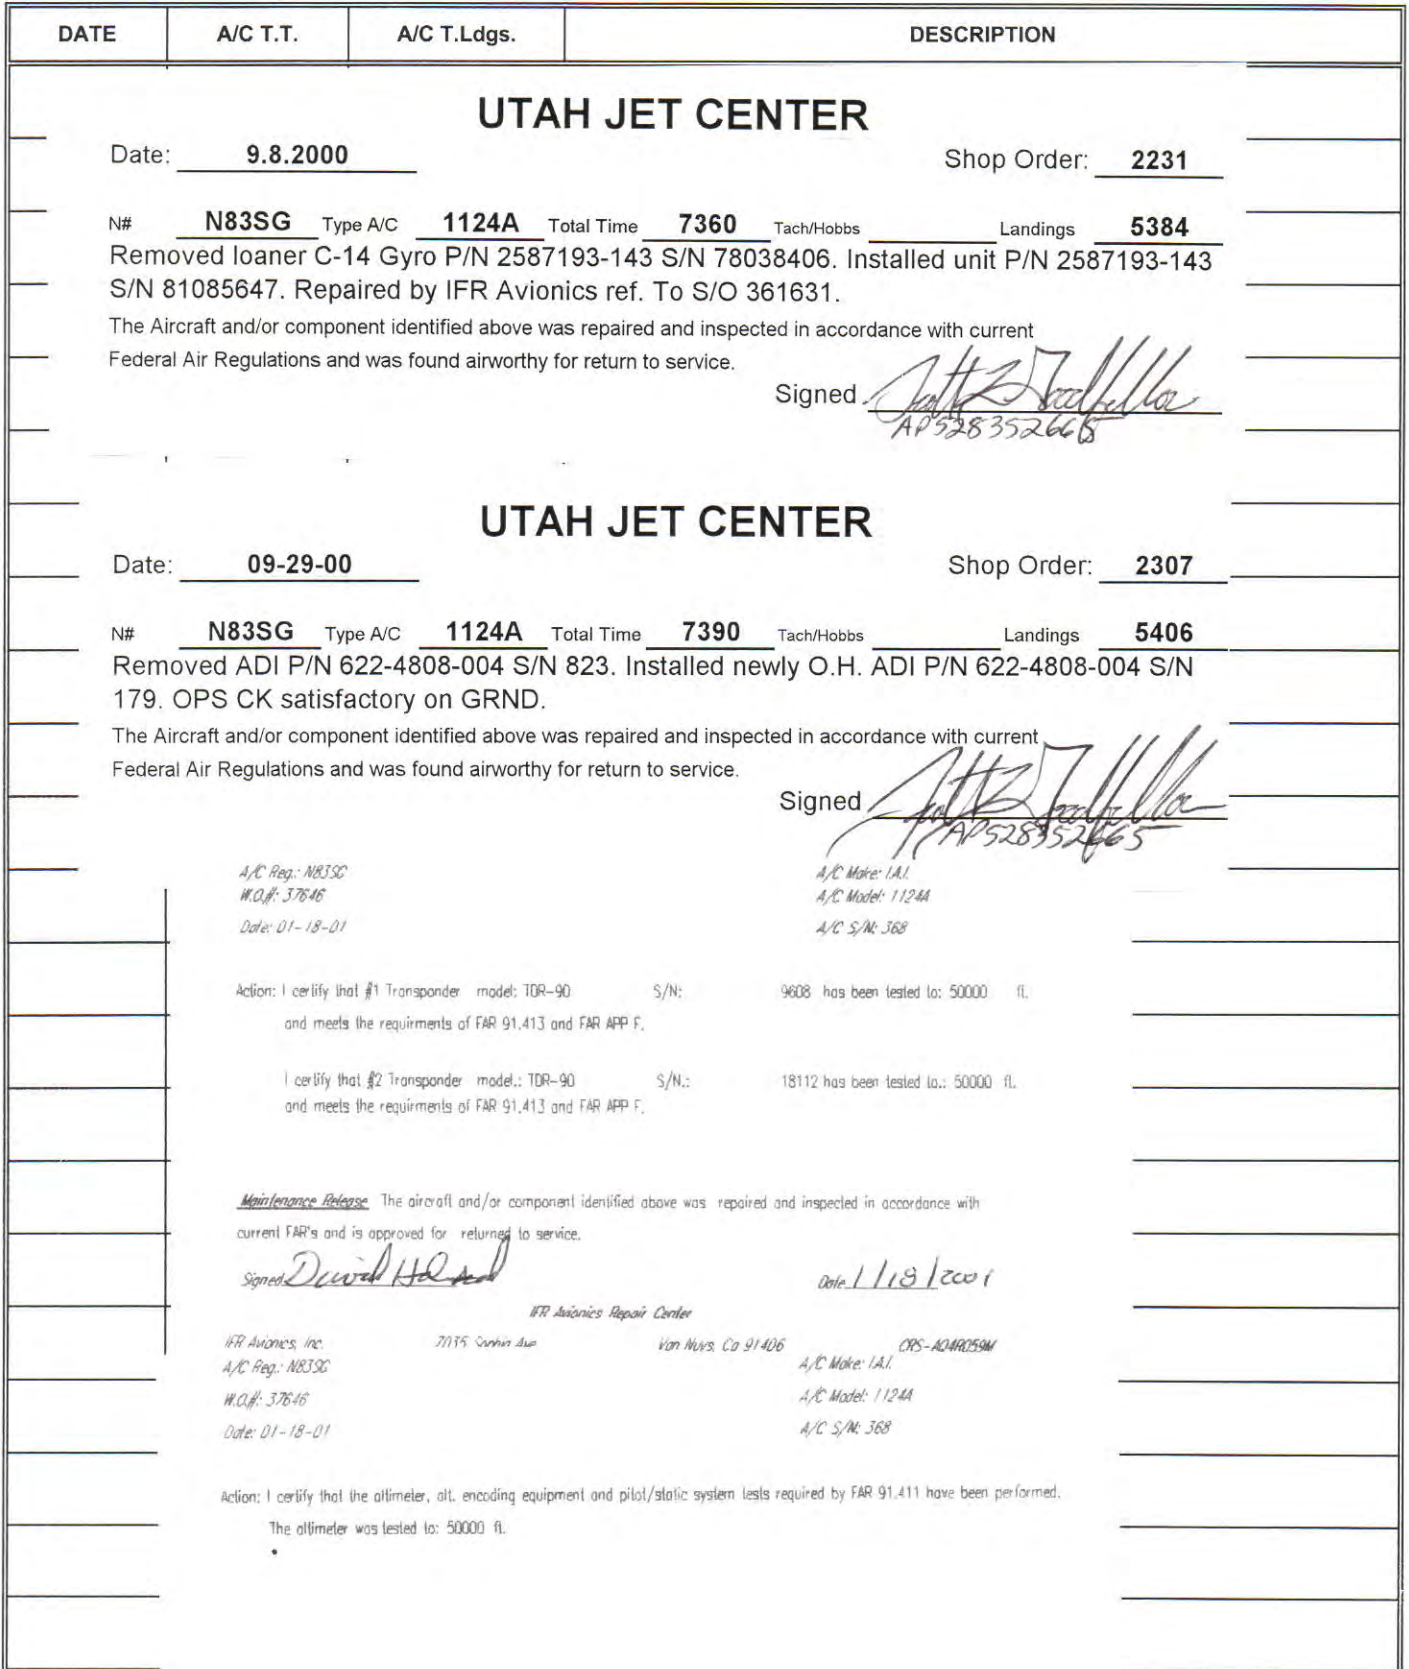 DATE A/C T.T. A/C T.Ldgs. DESCRIPTION
UTAH JET CENTER
Date: 9.8.2000 Shop Order: 2231
N# N83SG Type A/C 1124A Total Time 7360 Tach/Hobbs Landings 5384
Removed loaner C-14 Gyro P/N 2587193-143 S/N 78038406. Installed unit P/N 2587193-143
S/N 81085647. Repaired by IFR Avionics ref. To S/O 361631.
The Aircraft and/or component identified above was repaired and inspected in accordance with current
Federal Air Regulations and was found airworthy for return to service.
Signed Scott Z Goodfellow
AP528352665
UTAH JET CENTER
Date: 09-29-00 Shop Order: 2307
N# N83SG Type A/C 1124A Total Time 7390 Tach/Hobbs Landings 5406
Removed ADI P/N 622-4808-004 S/N 823. Installed newly O.H. ADI P/N 622-4808-004 S/N
179. OPS CK satisfactory on GRND.
The Aircraft and/or component identified above was repaired and inspected in accordance with current
Federal Air Regulations and was found airworthy for return to service.
Signed Scott Z Goodfellow
AP528352665
A/C Reg.: N83SG A/C Make: I.A.I.
W.O.#: 37646 A/C Model: 1124A
Date: 01-18-01 A/C S/N: 368
Action: I certify that #1 Transponder model: TDR-90 S/N: 9608 has been tested to: 50000 ft.
and meets the requirments of FAR 91.413 and FAR APP F.
I certify that #2 Transponder model.: TDR-90 S/N.: 18112 has been tested to.: 50000 ft.
and meets the requirments of FAR 91.413 and FAR APP F.
Maintenance Release The aircraft and/or component identified above was repaired and inspected in accordance with
current FAR's and is approved for returned to service.
Signed David Date 1/18/2001
IFR Avionics Repair Center
IFR Avionics, Inc. 7035 Ave Van Nuys, Ca 91406 CRS-AO4R059M
A/C Reg.: N83SG A/C Make: I.A.I.
W.O.#: 37646 A/C Model: 1124A
Date: 01-18-01 A/C S/N: 368
Action: I certify that the altimeter, alt. encoding equipment and pitot/static system tests required by FAR 91.411 have been performed.
The altimeter was tested to: 50000 ft.